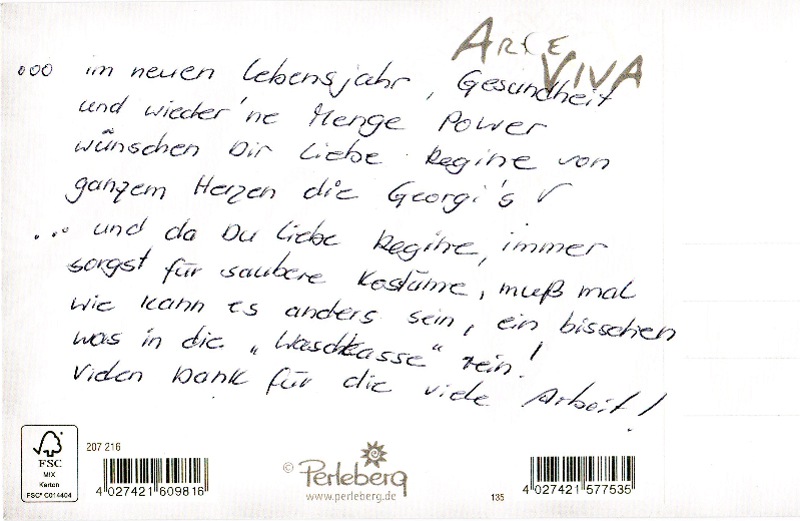 ARTE
VIVA
... im neuen Lebensjahr, Gesundheit
und wieder 'ne Menge Power
wünschen Dir Liebe Regine von
ganzem Herzen die Georgi's
... und da Du liebe Regine, immer
sorgst für saubere Kostüme, muß mal
wie kann es anders sein, ein bisschen
was in die „Waschkasse" rein!
Vielen Dank für die viele Arbeit!
FSC
MIX
Karton
FSC® C014404
207 216
4 027421 609816
© Perleberg
www.perleberg.de
135
4 027421 577535